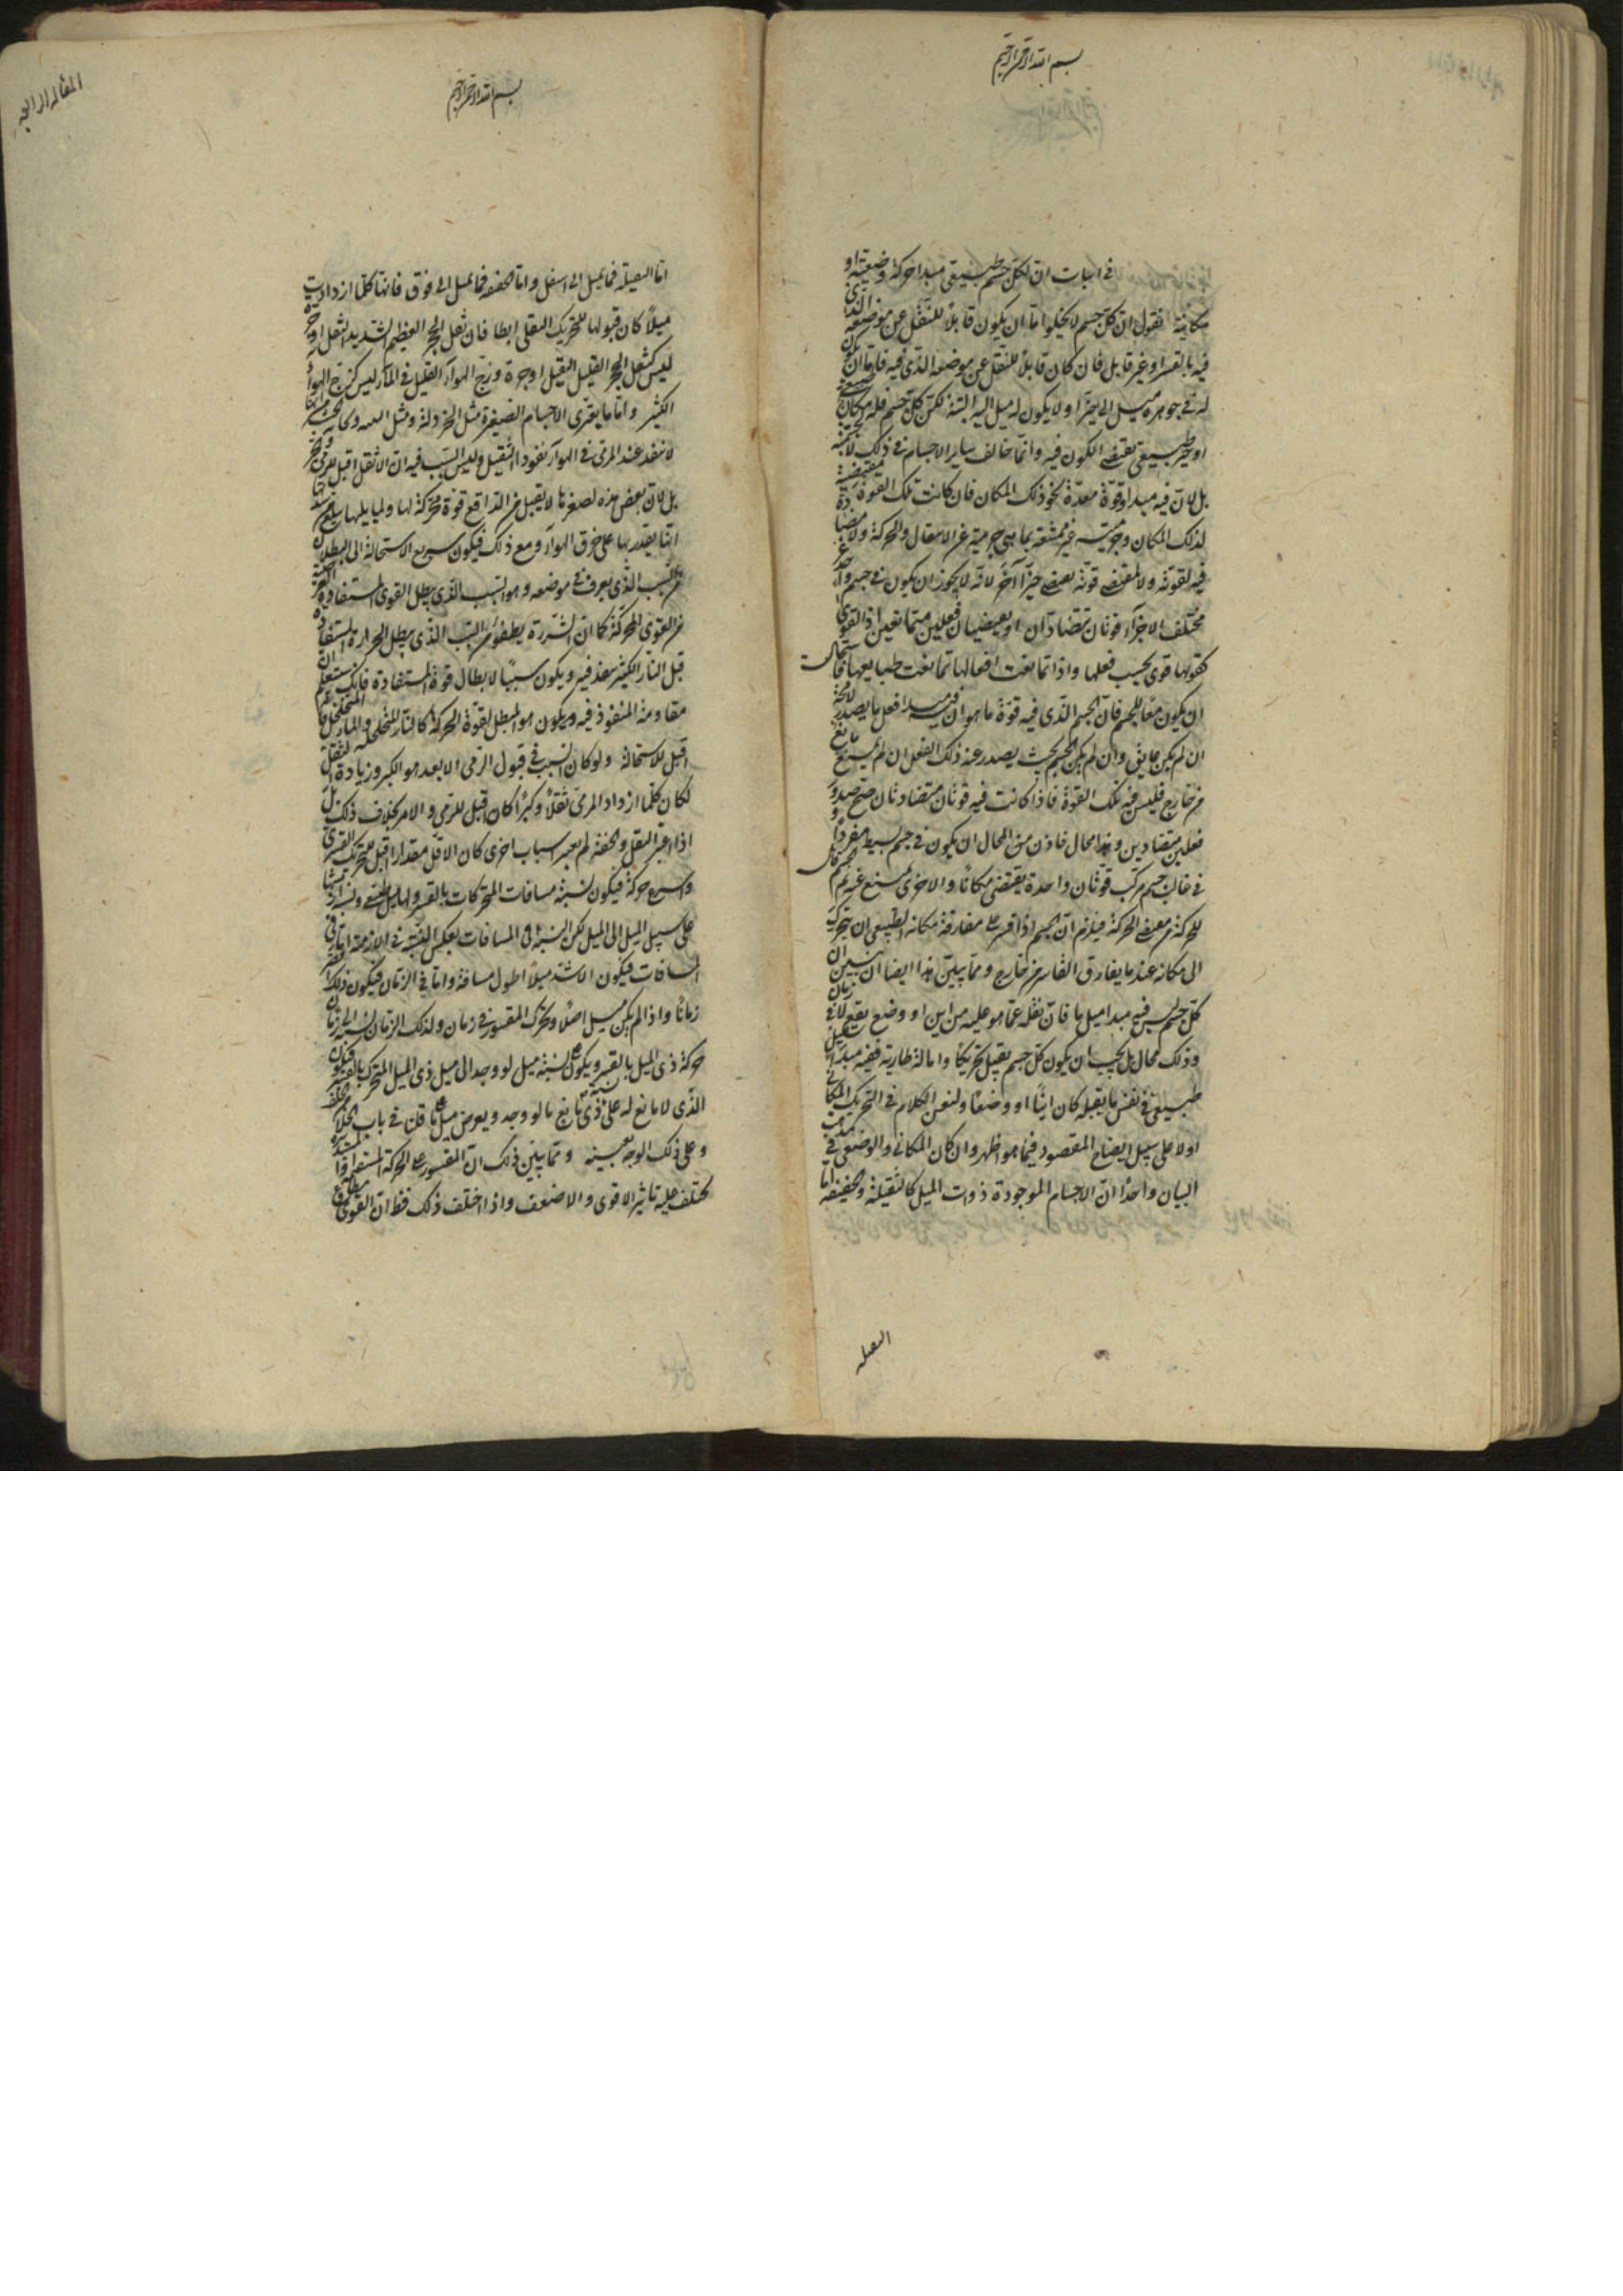 بسم الله الرحمن الرحيم
في اثبات ان لكل جسم طبيعي مبدا حركة وضعية او
مكانية نقول ان كل جسم لا يخلو اما ان يكون قابلا للنقل عن موضعه الذي
فيه بالقسر او غير قابل فان كان قابلا للنقل عن موضعه الذي فيه فاما ان يكون
له في جوهره ميل الى حيز او لا يكون له ميل اليه البتة لكن كل جسم فله مكان طبيعي
او حيز طبيعي تقتضي الكون فيه وانما خالف ساير الاجسام في ذلك لا بجسميته
بل لان فيه مبدا وقوة معدة نحو ذلك المكان فان كانت تلك القوة مقتضية
لذلك المكان وجرميته غير ممتنعة بما هي جرمية عن الانتقال والحركة ولا مضادة
فيه لقوته ولا لمقتضى قوته بعضى حيزا آخر لانه لا يجوز ان يكون في جسم واحد غير
مختلف الاجزاء قوتان متضادتان او يعيضيان فعلين متمانعين اذ القوى
كونها قوى بحسب فعلها واذا تمانعت افعالها تمانعت طبايعها فاستحال
ان يكون معا للجسم فان الجسم الذي فيه قوة ما هو ان فيه مبدا فعل ما يصدر لا محة
ان لم يكن عايق وان لم يكن الجسم بحيث يصدر عنه ذلك الفعل ان لم يمنع مانع
من خارج فليس فيه تلك القوة فاذا كانت فيه قوتان متضادتان صح صدور
فعلين متضادين وهذا محال فاذن من المحال ان يكون في جسم بسيط مفردا و
في غالب جسم مركب قوتان واحدة يقتضي مكانا والاخرى يمنع عنه
للحركة فيلزم ان الجسم اذا قسر على مفارقة مكانه الطبيعي ان يتحرك
الى مكانه عندما يفارق القاسر من خارج ومما يبين هذا ايضا ان نبين ان
كل جسم ليس فيه مبدا ميل ما فان نقله عما هو عليه من اين او وضع يقع لا في زمان
وذلك محال بل يجب ان يكون كل جسم يقبل تحريكا وامالة طارية ففيه مبدا ميل
طبيعي في نفس ما يقبله كان اينا او وضعا ولنعين الكلام في التحريك المكاني
اولا على سبيل ايضاح المقصود فيما هو اظهر وان كان المكاني والوضعي في
البيان واحدا ان الاجسام الموجودة ذوات الميل كالثقيلة والخفيفة اما
الثقيله
المقالة الرابعة
بسم الله الرحمن الرحيم
اما الثقيلة فما يميل الى اسفل واما الخفيفه فما يميل الى فوق فانها كلما ازدادت
ميلا كان قبولها للتحريك النقلي ابطا فان نقل الحجر العظيم الشديد الثقل او جره
ليس كنقل الحجر القليل الثقيل او جره وزج الهواء القليل في الماء ليس كزج الهواء
الكثير واما ما يعترى الاجسام الصغيرة مثل الخردلة ومثل
لا تنفذ عند الرمي في الهواء نفوذ الثقيل وليس السبب فيه ان الاثقل اقبل للرمي
بل لان بعض هذه لصغرها لا يقبل من الدافع قوة محركة لها ولما يليها
انها يقدر بها على خرق الهواء ومع ذلك فيكون سريع الاستحالة الى البطلان
من السبب الذي يعرف في موضعه وهو السبب الذي يبطل القوى المستفادة
من القوى المحركة كما ان الشررة يطفؤ من السبب الذي يبطل الحرارة المستفادة
قبل النار الكبيرة ويكون سببا لابطال قوته المستفادة فانك ستعلم ان
مقاومة المنفوذ فيه ويكون هو المبطل لقوة الحركة كالنار المتخلخلة والماء المتخلخل
اقبل للاستحالة ولو كان السبب في قبول الرمي الابعد هو الكبر وزيادة الثقل
لكان كلما ازداد المرمي ثقلا وكبرا كان اقبل للرمي والامر بخلاف ذلك بل
اذا اعتبر الثقل والخفة لم يعتبر اسباب اخرى كان الاقل مقدارا اقبل للتحريك القسري
واسرع حركة فيكون نسبة مسافات المتحركات بالقسر ولها ميل طبيعي
على سبيل الميل الى الميل لكن النسبة في المسافات بعكس النسبة في الازمنة اما في
المسافات فيكون الاشد ميلا اطول مسافة واما في الزمان فيكون ذلك
زمانا واذا لم يكن ميل اصلا وتحرك المقسور في زمان ولذلك الزمان نسبة الى زمان
حركة ذي الميل بالقسر ويكون نسبة ميل لو وجد الى ميل ذي الميل المتحرك بالقسر
الذي لا مانع له على نسبة ذي مانع ما لو وجد ويعرض ميل ما قلنا في باب الخلاء
وعلى ذلك الوجه بعينه ومما يبين ذلك ان المقسور على الحركة المستقيمة او المستديرة
يختلف عليه تاثير الاقوى والاضعف واذا اختلف ذلك فظ ان القوى